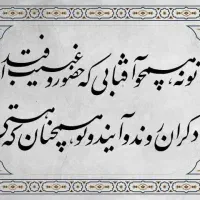 تو نه همچو آفتابی که حضور و غیبت افتد
دگران روند و آیند و تو همچنان که هستی